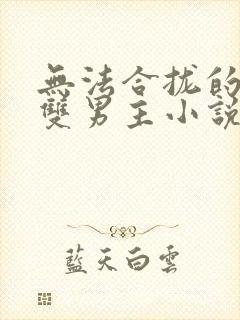 無法合拢的
雙男主小說
藍天白雲